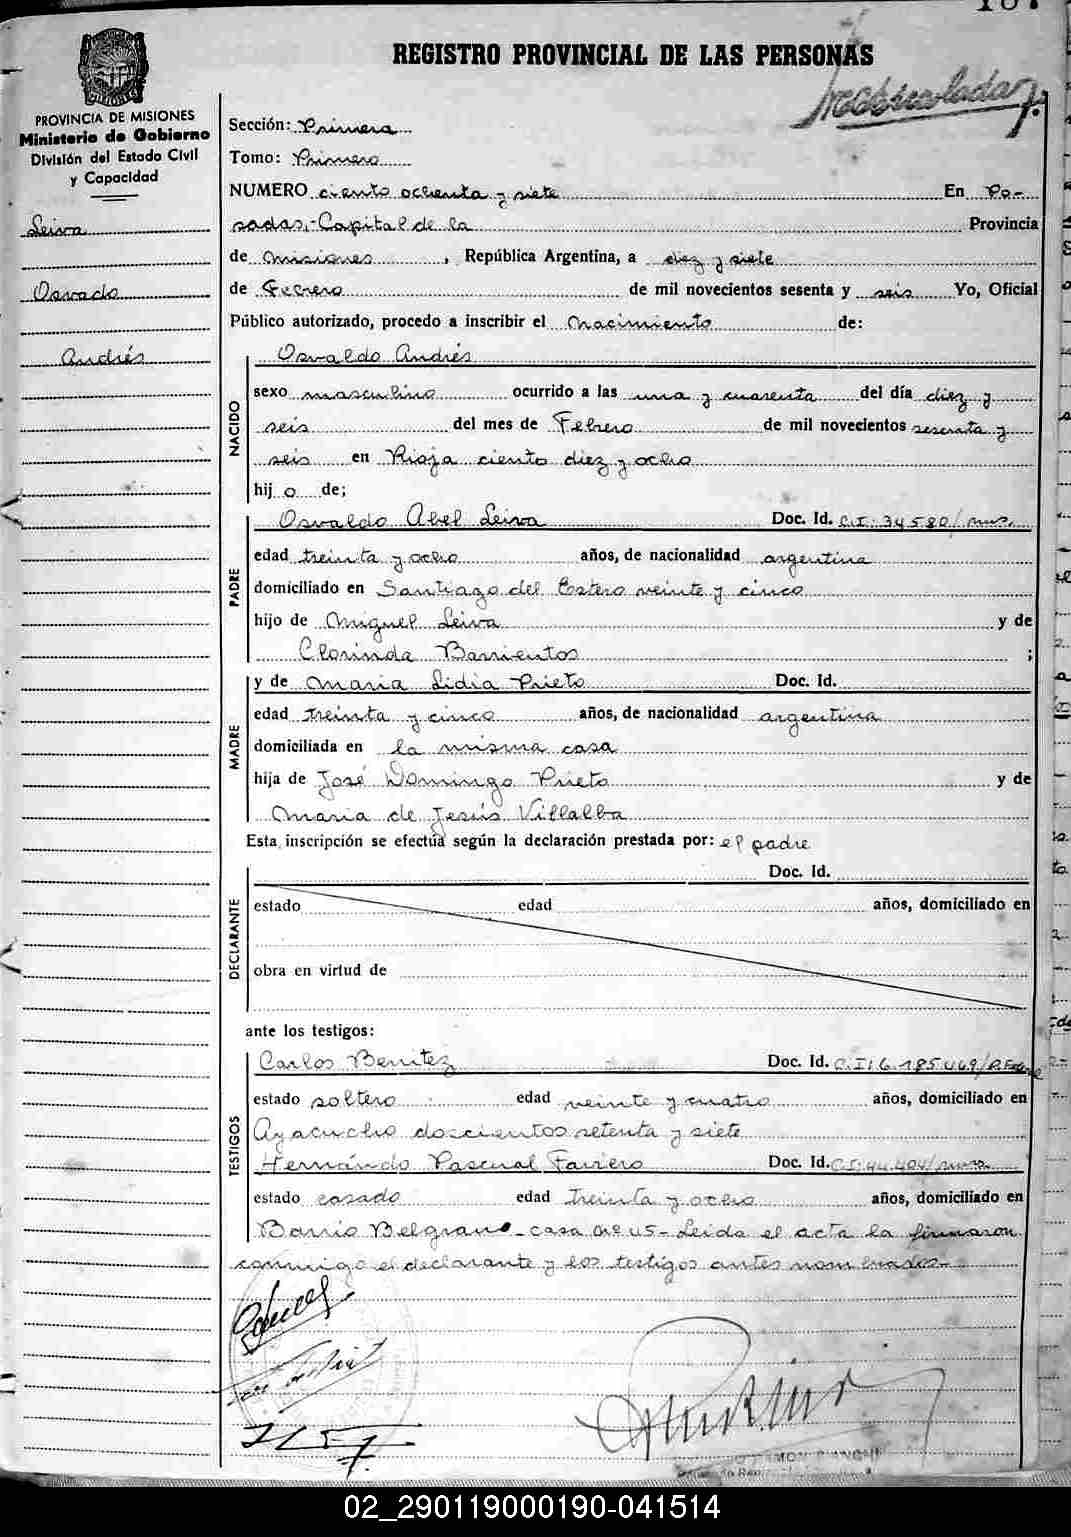 REGISTRO PROVINCIAL DE LAS PERSONAS
PROVINCIA DE MISIONES
Ministerio de Gobierno
División del Estado Civil
y Capacidad
Leiva
Osvado
Andrés
Sección: Primera
Tomo: Primero
NUMERO ciento ochenta y siete En Po-
sadas,-Capital de la Provincia
de Misiones, República Argentina, a diez y siete
de Febrero de mil novecientos sesenta y seis Yo, Oficial
Público autorizado, procedo a inscribir el nacimiento de:
NACIDO
Osvaldo Andrés
sexo masculino ocurrido a las una y cuarenta del día diez y
seis del mes de Febrero de mil novecientos sesenta y
seis en Rioja ciento diez y ocho
hijo de;
PADRE
Osvaldo Abel Leiva Doc. Id. C.I: 34580/mns.
edad treinta y ocho años, de nacionalidad argentina
domiciliado en Santiago del Estero veinte y cinco
hijo de Miguel Leiva y de
Clorinda Barrientos ;
MADRE
y de Maria Lidia Prieto Doc. Id.
edad treinta y cinco años, de nacionalidad argentina
domiciliada en la misma casa
hija de José Domingo Prieto y de
Maria de Jesús Villalba
Esta inscripción se efectúa según la declaración prestada por: el padre
DECLARANTE
Doc. Id.
estado edad años, domiciliado en
obra en virtud de
ante los testigos:
TESTIGOS
Carlos Benitez Doc. Id. C.I: 6.185.469/P.
estado soltero edad veinte y cuatro años, domiciliado en
Ayacucho doscientos setenta y siete
Hernándo Pascual Doc. Id. C.I: 44.404/mns.
estado casado edad treinta y ocho años, domiciliado en
Barrio Belgrano - casa nº 45 - Leida el acta la firmaron
conmigo el declarante y los testigos antes nombrados-
02_290119000190-041514